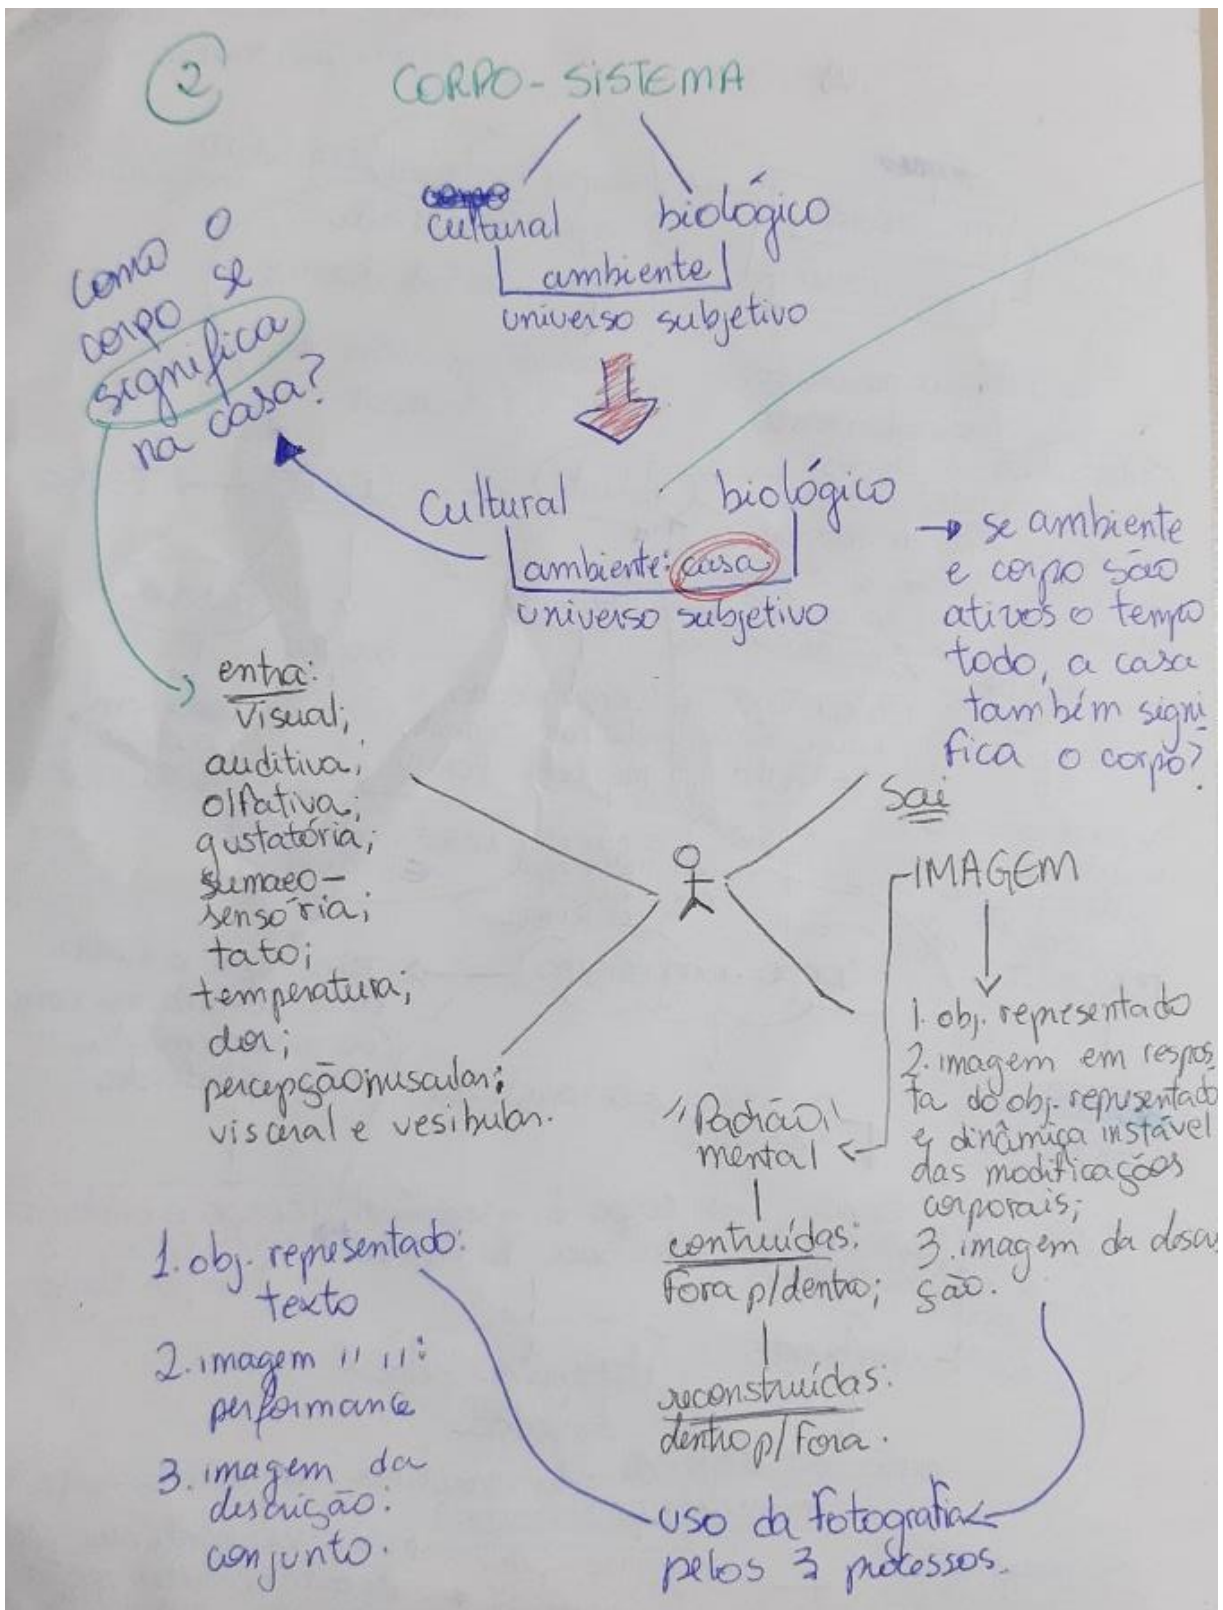 2
CORPO-SISTEMA
cultural biológico
ambiente
universo subjetivo
como o
corpo se
significa
na casa?
Cultural biológico
ambiente: casa
universo subjetivo
→ se ambiente
e corpo são
ativos o tempo
todo, a casa
também signi
fica o corpo?
entra:
visual;
auditiva;
olfativa;
gustatória;
sumaeo-
sensória;
tato;
temperatura;
dor;
percepção muscular;
visceral e vesibular.
Sai
IMAGEM
1. obj. representado
2. imagem em respos
ta do obj. representado
e dinâmica instável
das modificações
corporais;
3. imagem da descri
ção.
"Padrão"
mental
contruídas:
Fora p/dentro;
reconstruídas:
dentro p/ Fora.
1. obj. representado:
texto
2. imagem " ":
performance
3. imagem da
descrição:
conjunto.
uso da Fotografia
pelos 3 processos.